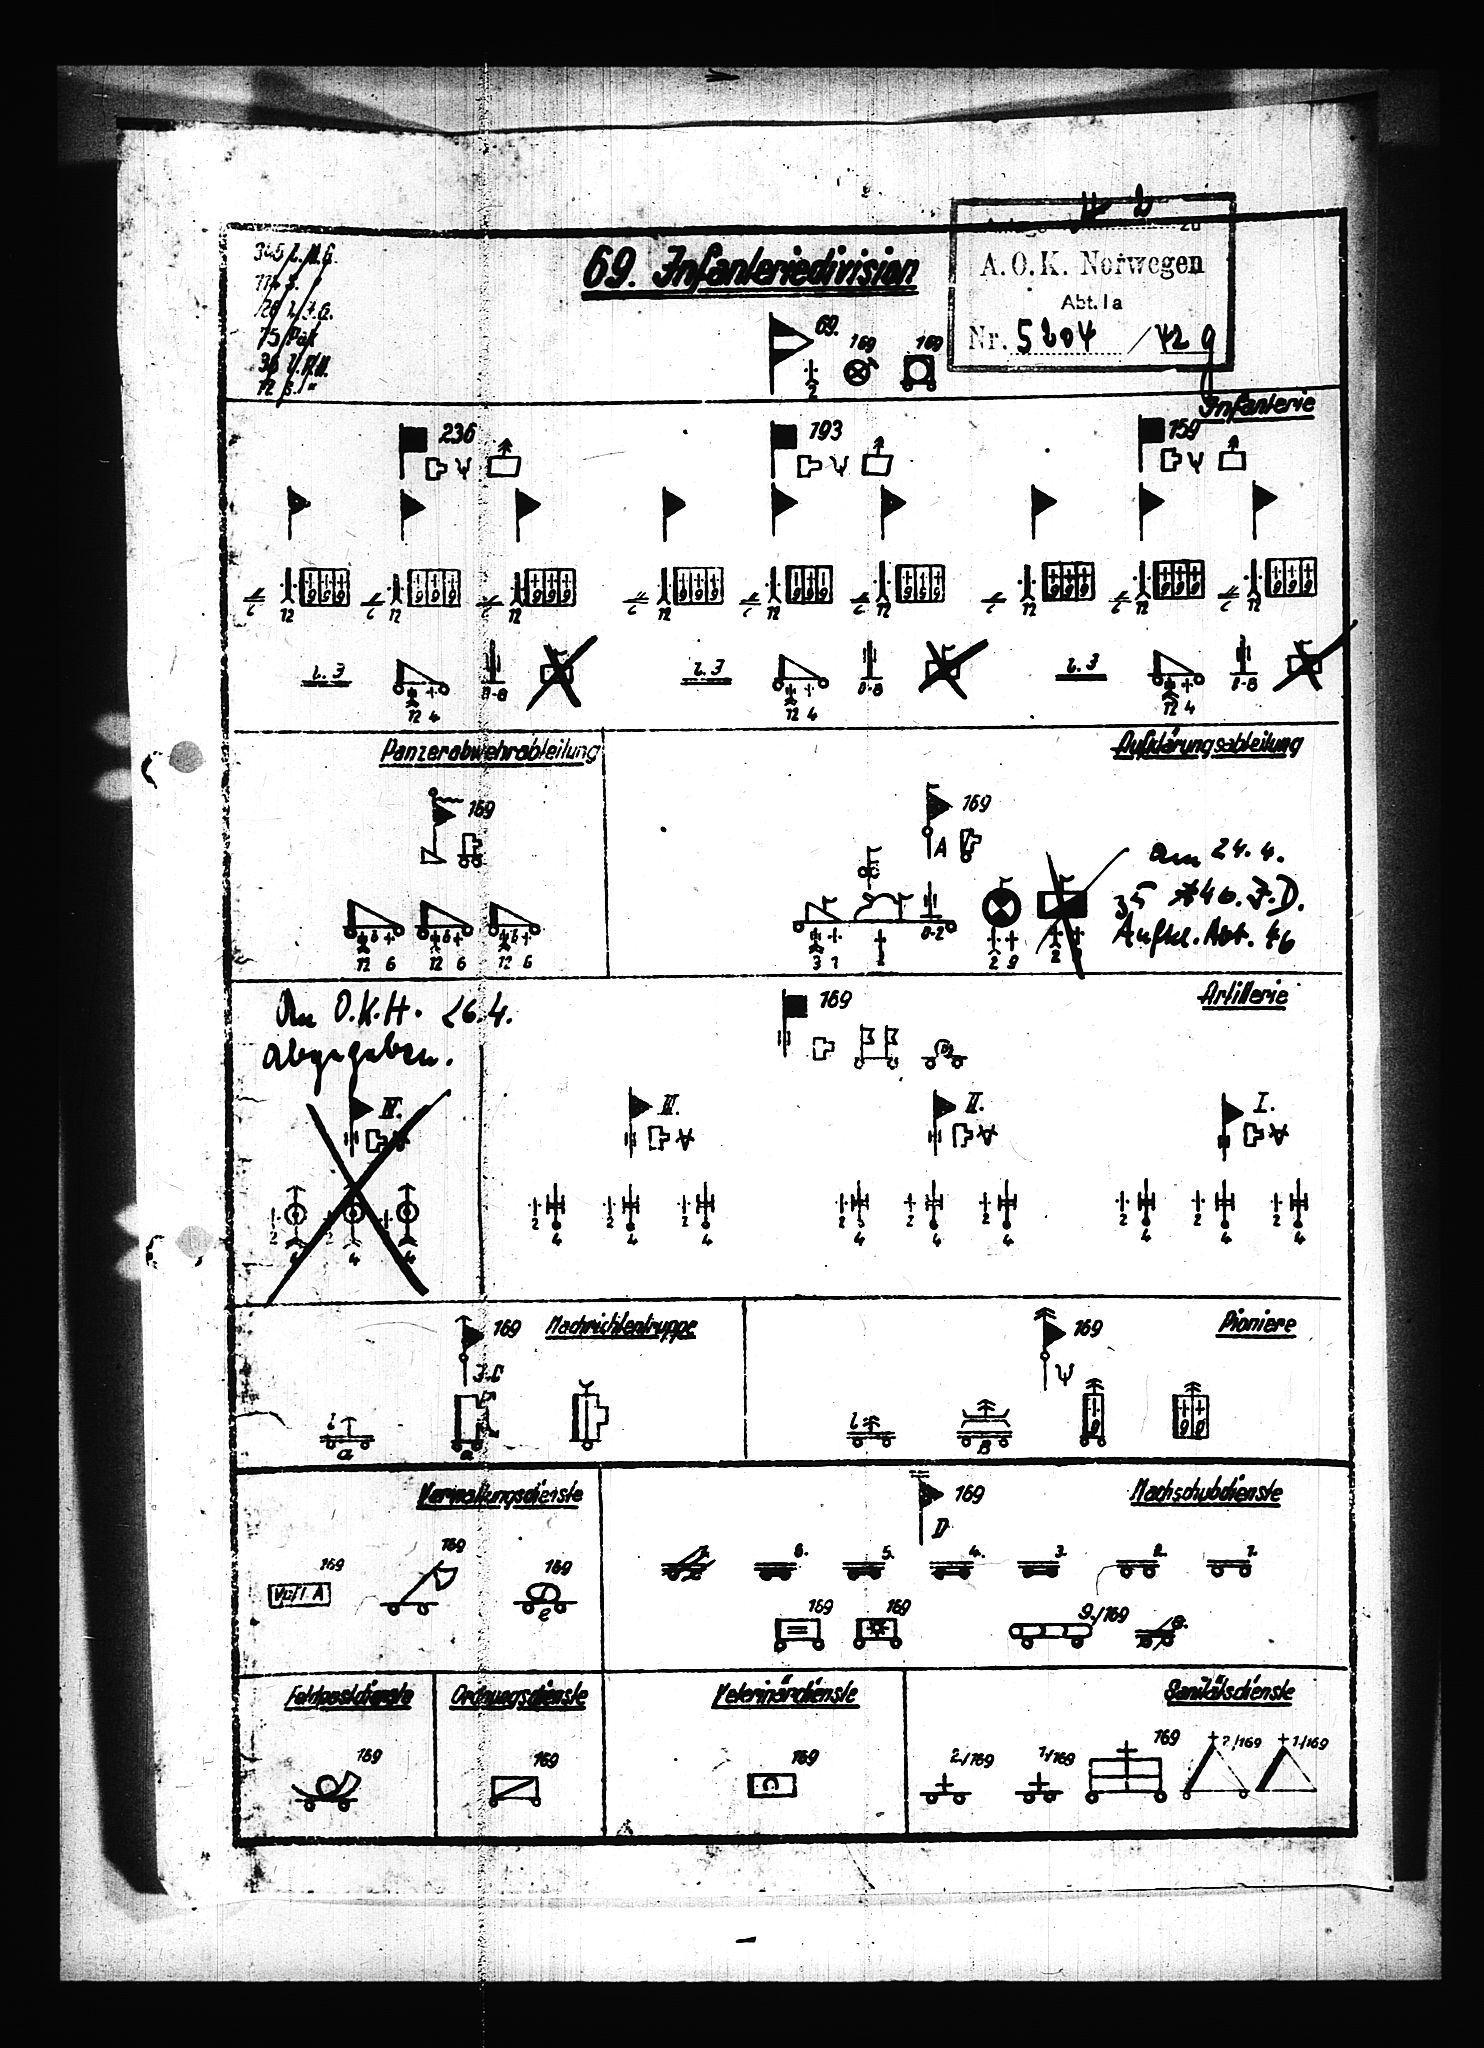 Anlage zu
A.O.K. Norwegen
Abt. Ia
Nr. 5204 / 42 g
l.M.G.
l.J.G.
75 Pak
69. Infanteriedivision
69.
2
169
169
Infanterie
236
193
159
c 12 c 12 c 12
c 12 c 12 c 12
c 12 c 12 c 12
l. J
12 4
0-8
l. J
12 4
0-8
l. J
12 4
0-8
Panzerabwehrabteilung
169
6 6 6
12 6 12 6 12 6
Aufklärungsabteilung
169
A
0-2
3 1
2 9
2
am 24.4.
Aufkl. Abt. 46
An O.K.H. 26.4.
abgegeben.
Artillerie
169
IV.
III.
II.
I.
2 4 2 4
2 4 2 4 2 4
2 4 2 4 2 4
2 4 2 4 2 4
Nachrichtentruppe
169
l
a
a
Pioniere
169
l
B
Verwaltungsdienste
169
169
169
e
Nachschubdienste
169
D
7. 6. 5. 4. 3. 2. 1.
169
169
9./169
8.
Feldpostdienste
169
Ordnungsdienste
169
Veterinärdienste
169
Sanitätsdienste
2./169
1./169
169
2./169
1./169